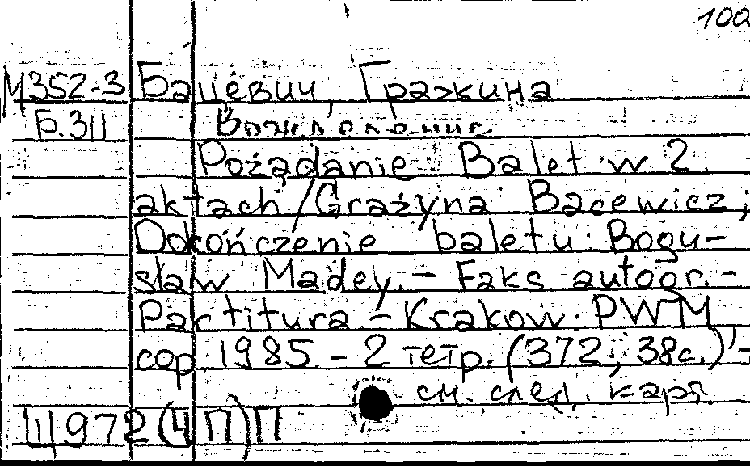 100
М352-3 Бацевич, Гражина
Б.311 Вожделение
Pożądanie: Balet w 2
aktach/Grażyna Bacewicz;
Dokończenie baletu: Bogu-
sław Madey. - Faks autogr. -
Partitura - Krakow: PWM
cop 1985. - 2 тетр. (372; 38с.) -
см. след. карт
Ш972(4П)П